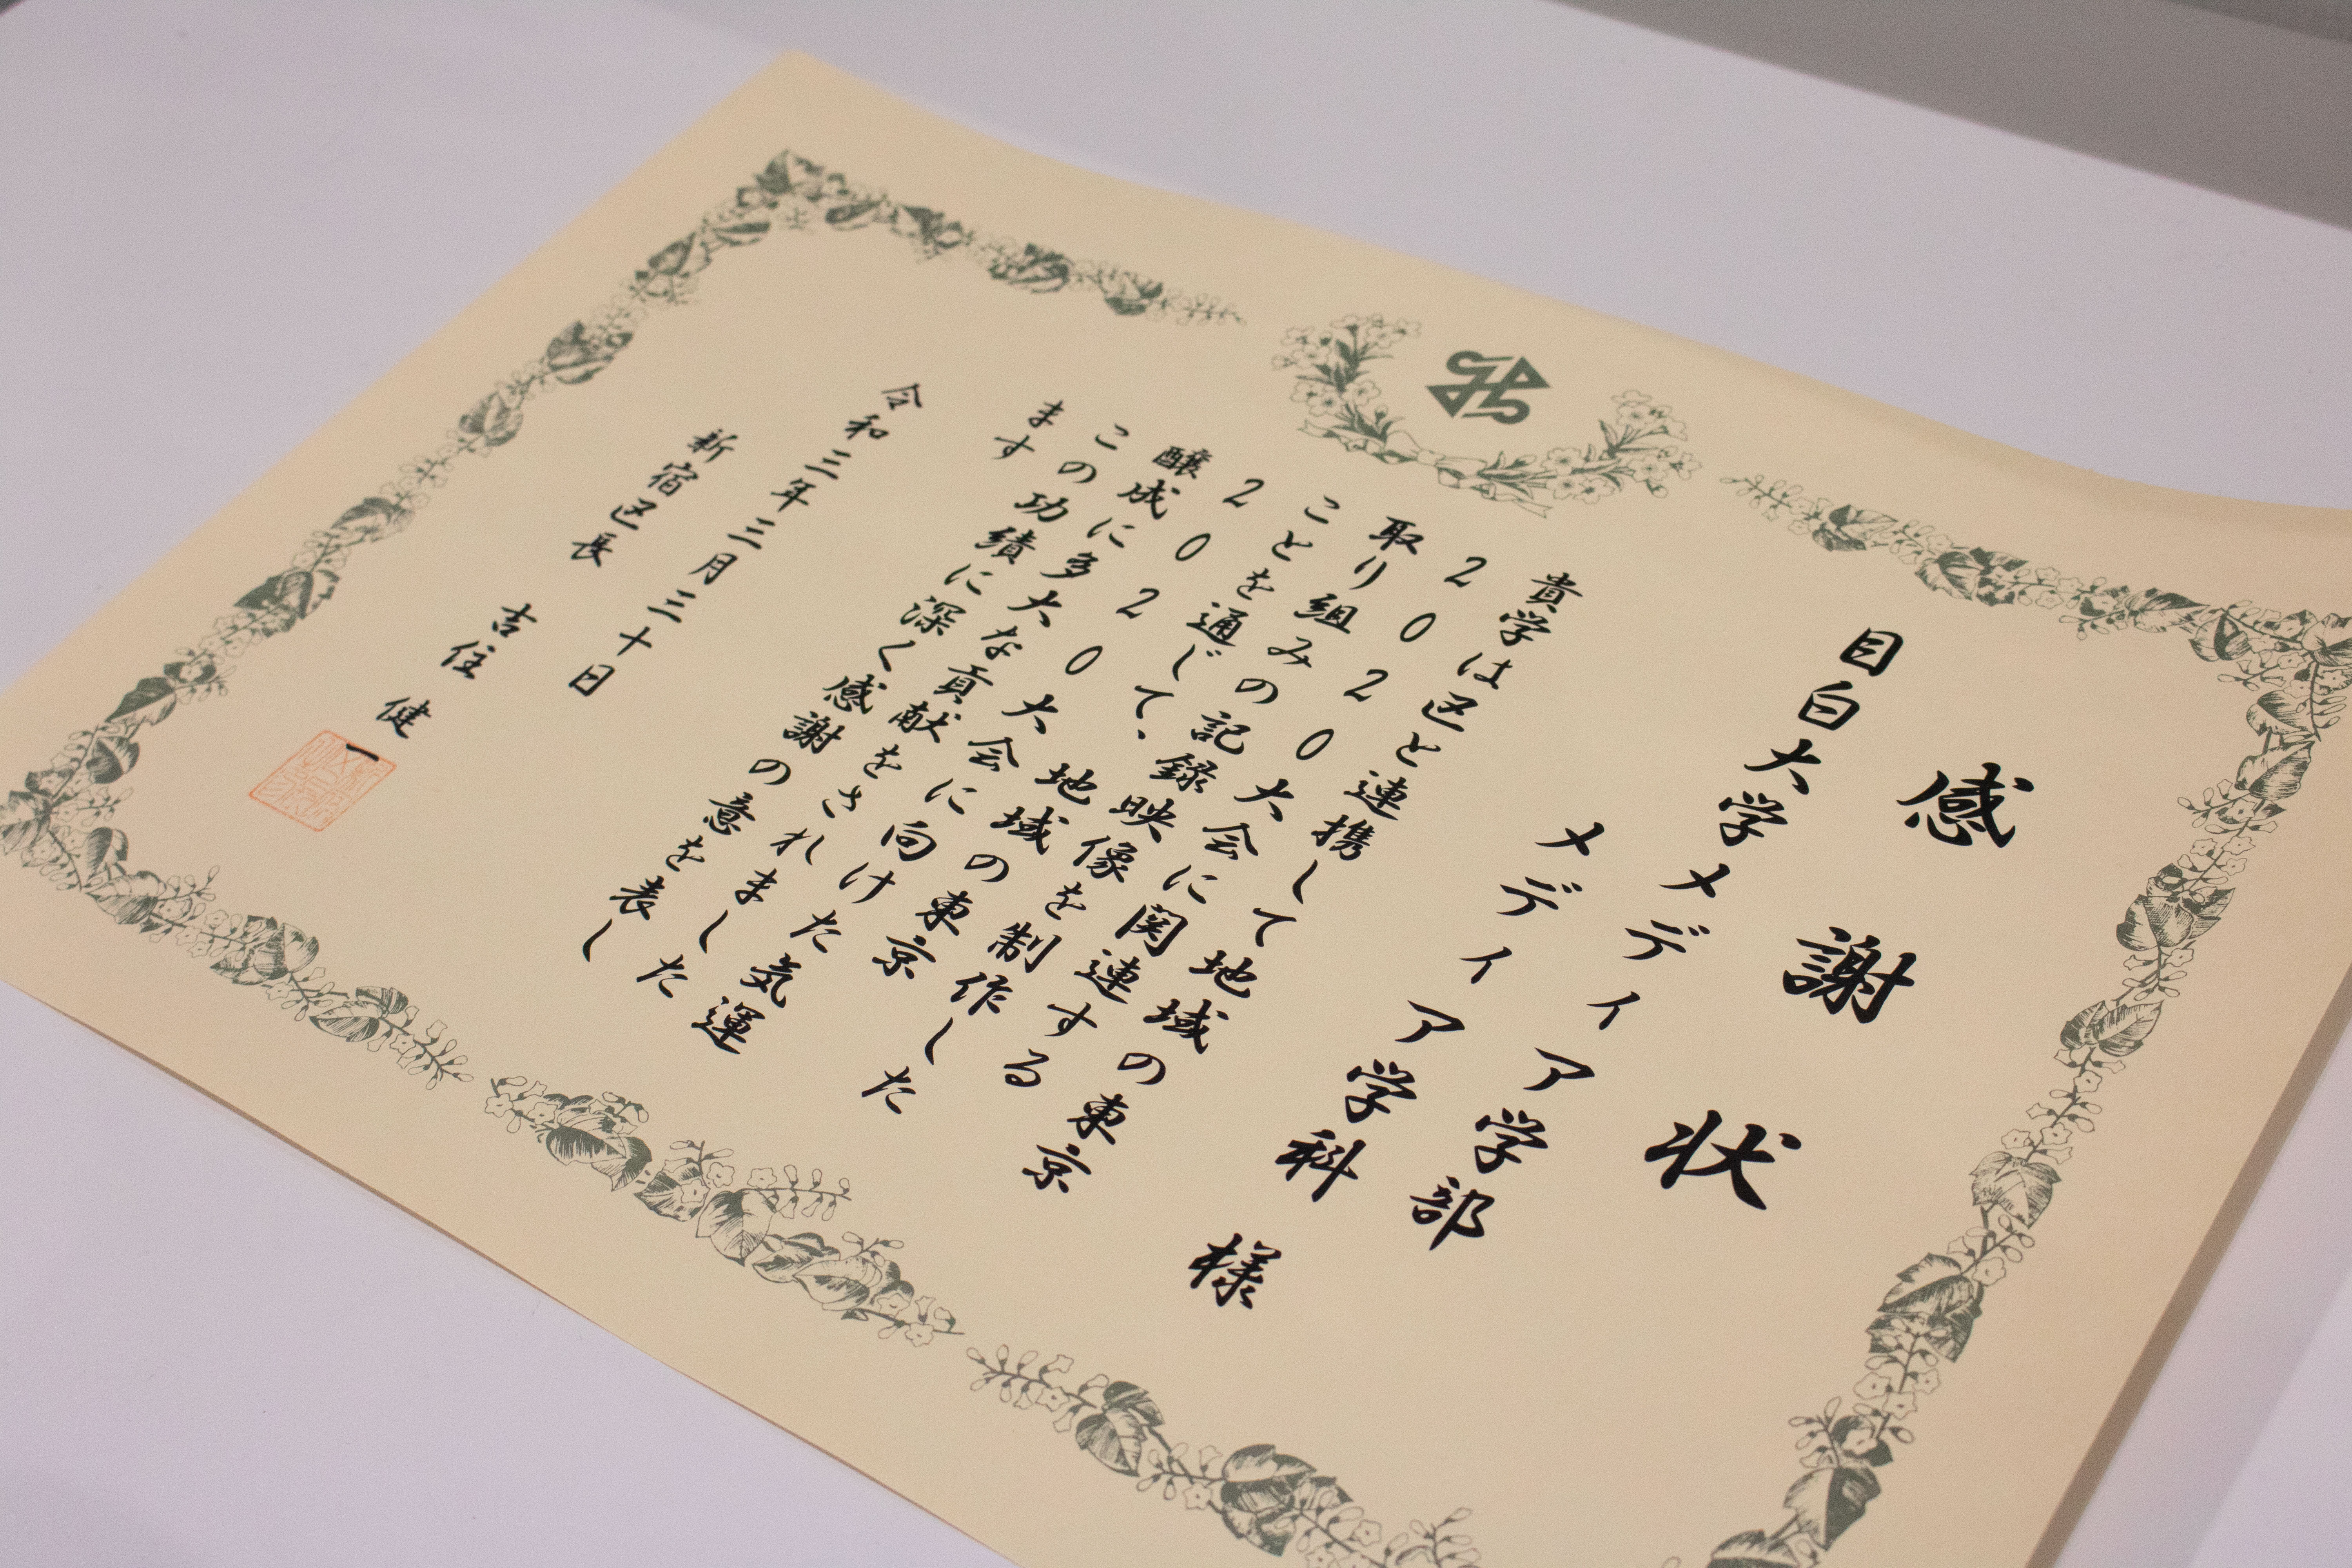 感謝状
目白大学メディア学部
メディア学科 様
貴学は区と連携して地域の東京
2020大会に関連する
取り組みの記録映像を制作した
ことを通じて、地域の東京
2020大会に向けた気運
醸成に多大な貢献をされました
この功績に深く感謝の意を表し
ます
令和三年三月三十日
新宿区長 吉住 健一